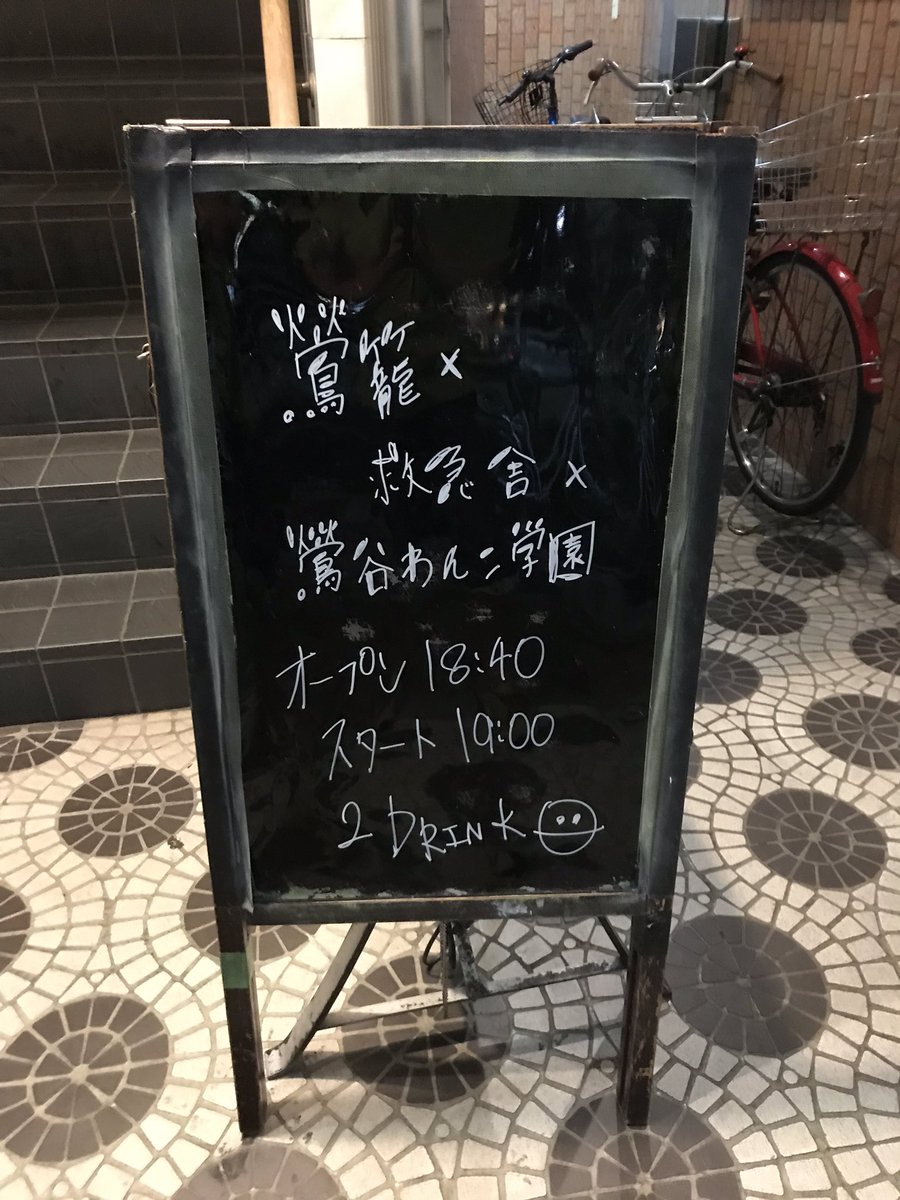 鶯籠×
救急舎×
鶯谷わんこ学園
オープン 18:40
スタート 19:00
2 DRINK